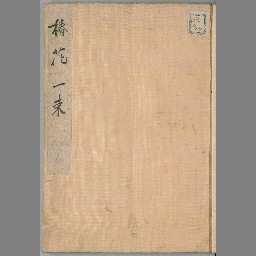 椿花一束